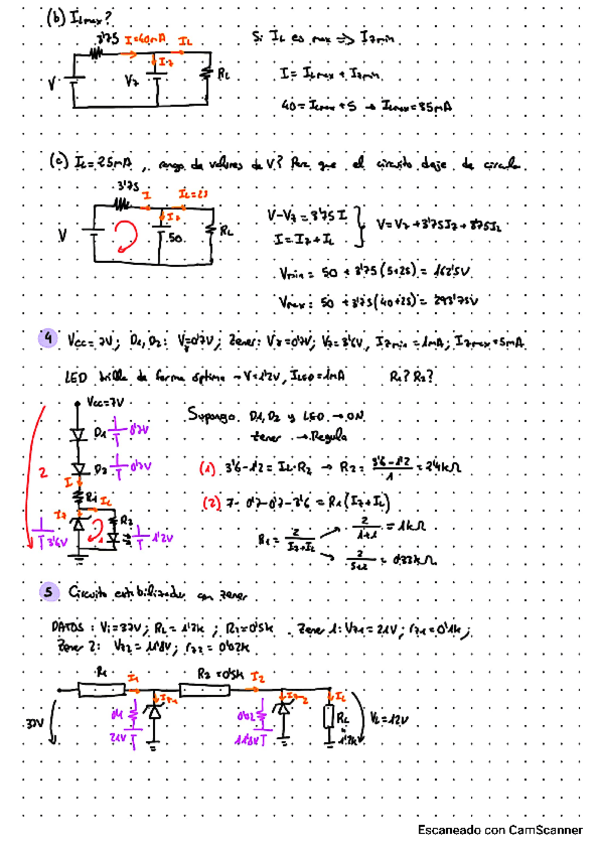 (b) ILmax?
3'75 I=40mA IL
Si IL es max => IZmin
IZ
V VZ RL
I = ILmax + IZmin
40 = ILmax + 5 → ILmax = 35mA
(c) IL = 25mA, rango de valores de V? Para que el circuito deje de
3'75 I IL=25
IZ
V 50 RL
V-VZ = 3'75 I
I = IZ + IL
V = VZ + 3'75IZ + 3'75IL
Vmin = 50 + 3'75(5+25) = 162'5V
Vmax = 50 + 3'75(40+25) = 293'75V
4 Vcc = 7V; D1, D2: Vγ=0'7V; Zener: Vγ=0'7V; VZ=3'6V, IZmin=1mA; IZmax=5mA
LED brilla de forma óptima → V=1'2V, ILED=1mA R1? R2?
Vcc=7V
D1 0'7V
D2 0'7V
2
I
R1 IL
IZ R2
3'6V 1 1'2V
Supongo D1, D2 y LED → ON
Zener → Regula
(1) 3'6-1'2 = IL·R2 → R2 = 3'6-1'2 / 1 = 2'4kΩ
(2) 7-0'7-0'7-3'6 = R1(IZ+IL)
R1 = 2 / IZ+IL
2 / 1+1 = 1kΩ
= 0'33kΩ
5 Circuito estabilizador con zener
DATOS: Vi=37V; RL=1'2k; R1=0'5k. Zener 1: VZ1=21V; rZ1=0'1k;
Zener 2: VZ2=11'8V; rZ2=0'02k
R1 I1 R2=0'5k I2
IZ1 IZ2 IL
0'1 0'02 RL
21V 11'8V 1'2k
VL=12V
Escaneado con CamScanner